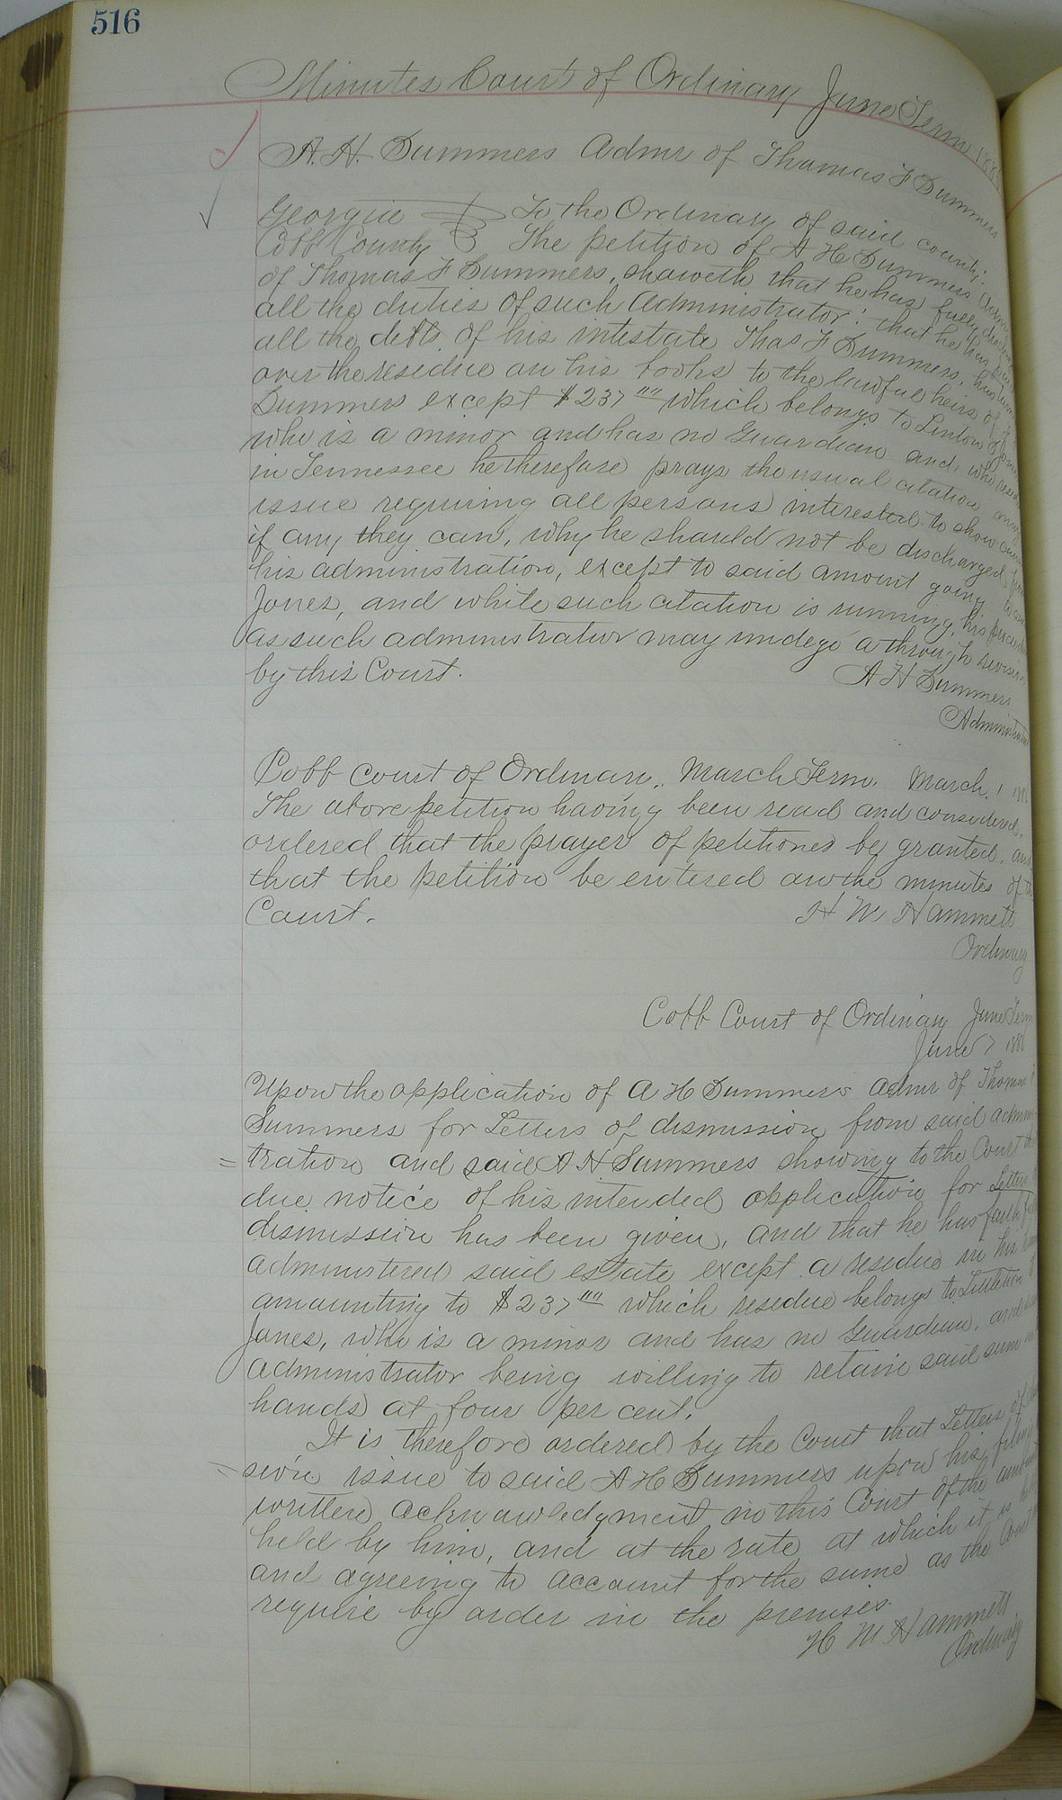 516
Minutes Court of Ordinary June Term
A. H. Summers Admr of Thomas F Summers
Georgia To the Ordinary of said county:
Cobb County The petition of A H Summers
of Thomas F Summers, showeth that he has fully
all the duties of such Administrator: that he has
all the debts of his intestate Thos F Summers,
over the residue on his books to the lawful heirs of
Summers except $237 "" which belongs to Linton
who is a minor and has no Guardian and who
in Tennessee he therefore prays the usual citation
issue requiring all persons interested to show
if any they can, why he should not be discharged
his administration, except to said amount going
Jones, and while such citation is running, his
as such administrator may undego a through
by this Court. A H Summers
Administrator
Cobb Court of Ordinary. March Term. March. 1
The above petition having been read and considered,
ordered that the prayer of petitioner be granted, and
that the petition be entered on the minutes of
Court. H M Hammett
Ordinary
Cobb Court of Ordinary June Term
June 7
Upon the application of A H Summers admr of Thomas
Summers for Letters of dismission from said admin
= tration and said A H Summers showing to the Court
due notice of his intended application for Letters
dismission has been given, and that he has
administered said estate except a residue in his
amounting to $237 "" which residue belongs to
Jones, who is a minor and has no Guardian, and
administrator being willing to retain said sum
hands at four per cent.
It is therefore ordered by the Court that Letters of
= sion issue to said A H Summers upon his filing
written acknowledgment in this Court of the amount
held by him, and at the rate at which it is
and agreeing to account for the same as the Court
require by order in the premises.
H M Hammett
Ordinary